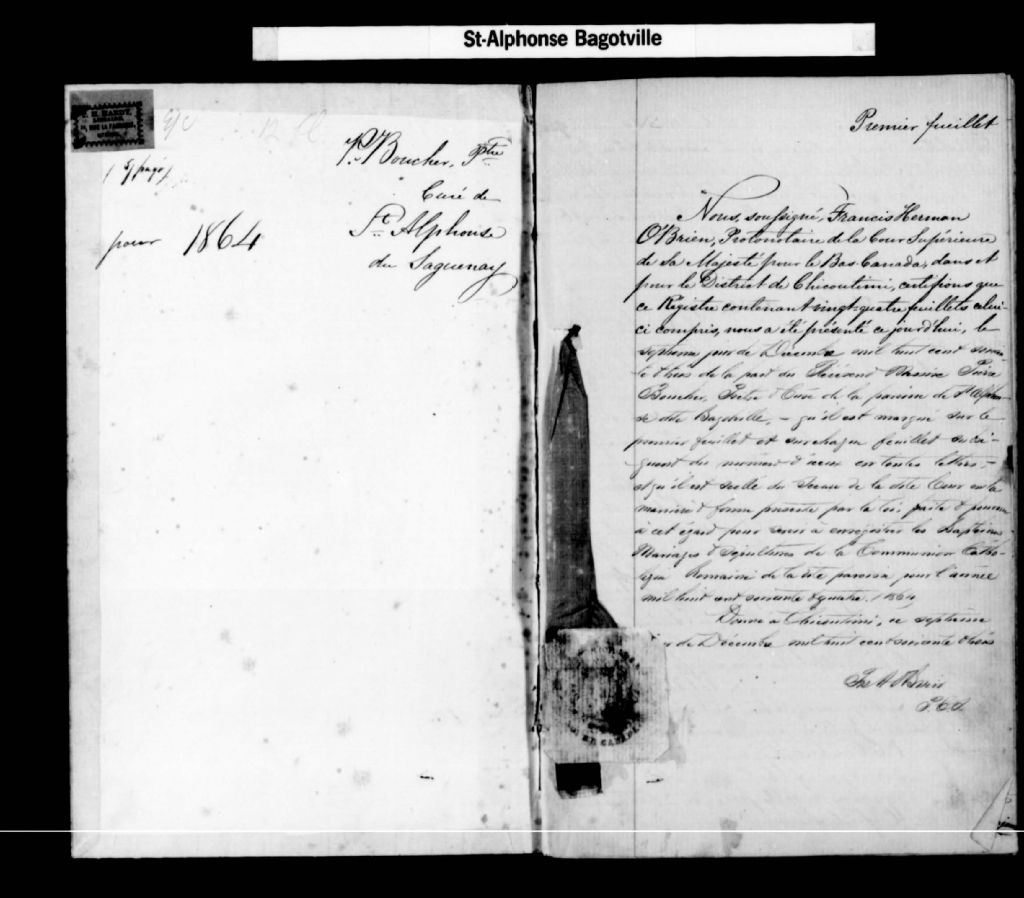 St-Alphonse Bagotville
J. H. HARDY,
LIBRAIRE,
RUE LA FABRIQUE,
P. Boucher, Ptre
Curé de
St. Alphonse
du Saguenay
pour 1864
Premier feuillet
Nous, soussigné, Francis Herman
O'Brien, Protonotaire de la Cour Supérieure
de Sa Majesté pour le Bas Canada, dans et
pour le District de Chicoutimi, certifions que
ce Registre contenant vingt-quatre feuillets celui-
ci compris, nous a été présenté ce jourd'hui, le
septième jour de Décembre mil huit cent soixan-
te & trois de la part du Révérend Messire Pierre
Boucher, Prêtre & Curé de la paroisse de St Alphon-
se dite Bagotville, - qu'il est marqué sur le
premier feuillet et sur chaque feuillet subsé-
quent du numéro d'iceux en toutes lettres, -
et qu'il est scellé du Sceau de la dite Cour en la
manière & forme prescrite par la loi faite & pourvue
à cet égard pour servir à enregistrer les Baptêmes
Mariages & Sépultures de la Communion Catho-
lique Romaine de la dite paroisse pour l'année
mil huit cent soixante & quatre. 1864
Donné à Chicoutimi, ce septième
de Décembre mil huit cent soixante & trois
P.C.S.